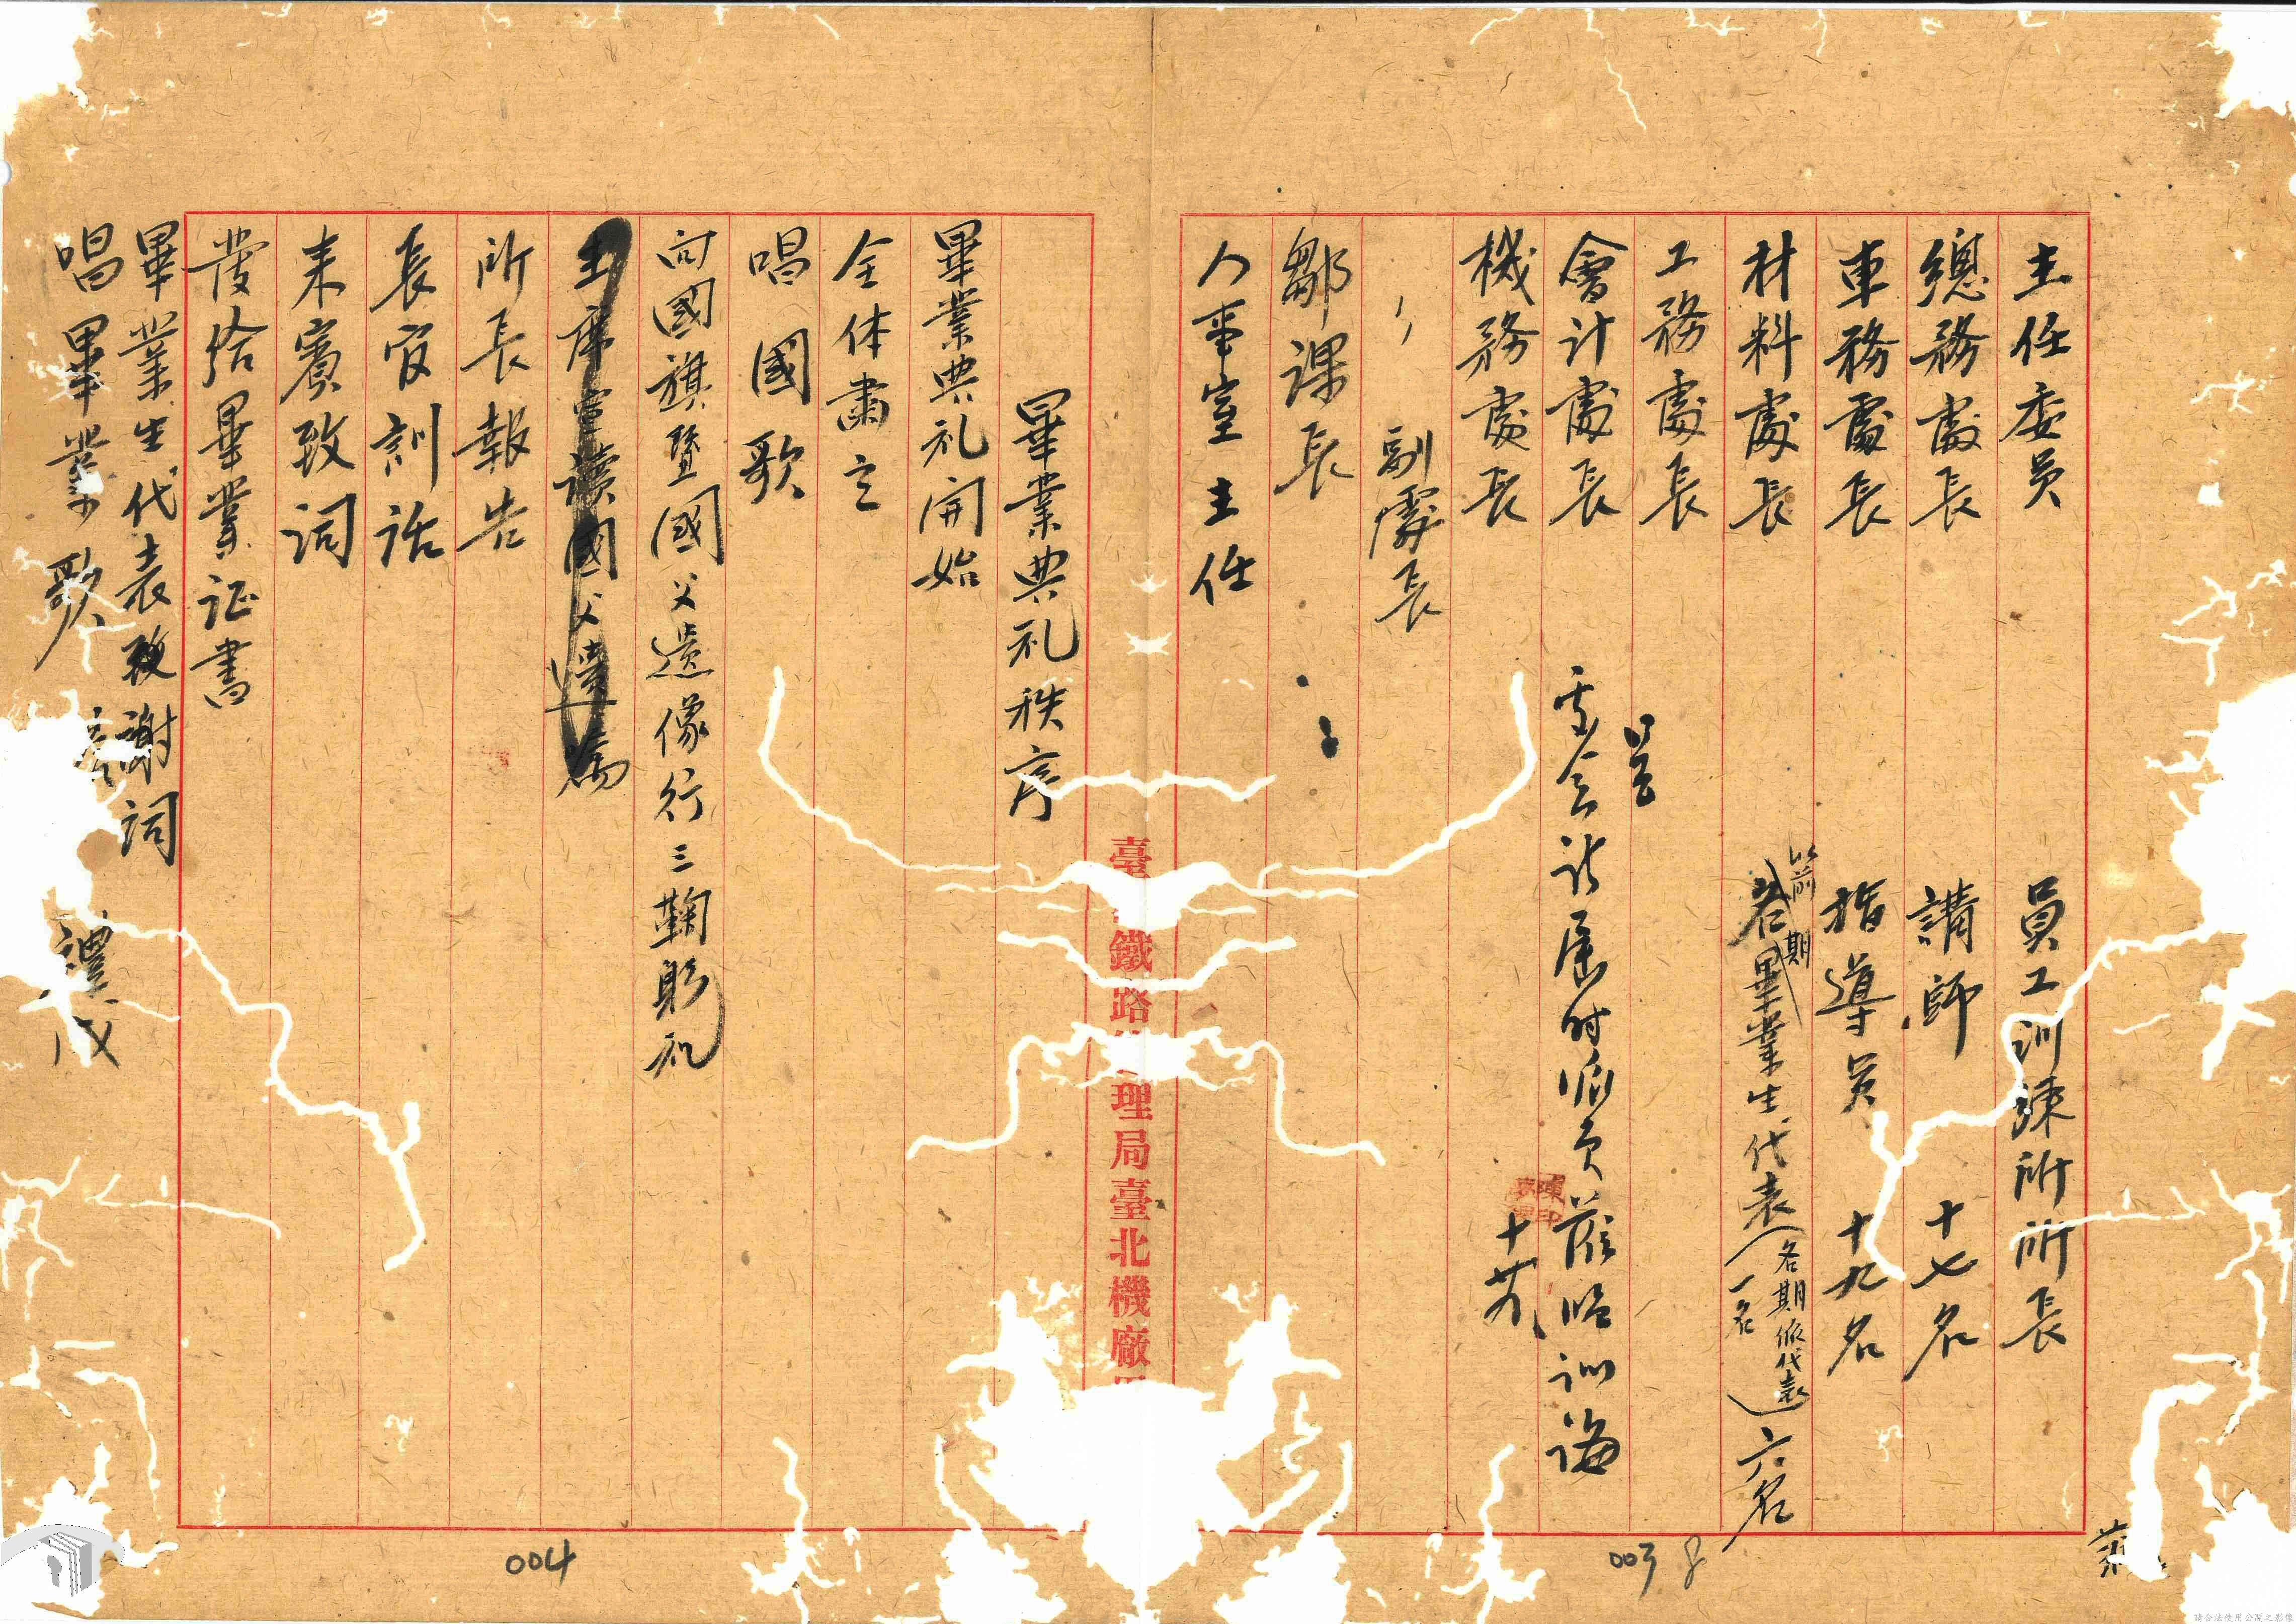 主任委員
員工訓練所所長
總務處長
講師 十七名
車務處長
指導員 十九名
材料處長
以前 期
各畢業生代表(各期派代表一名)六名
工務處長
呈
會計處長
屆時派員蒞臨訓誨
機務處長
〃 副處長
鄒課長
人事室主任
臺 鐵路 理局臺北機廠
畢業典礼秩序
畢業典礼開始
全体肅立
唱國歌
向國旗暨國父遺像行三鞠躬礼
主席宣讀國父遺囑
所長報告
長官訓話
来賓致詞
發給畢業证書
畢業生代表致謝詞
唱畢業歌
禮成
004
003
請合法使用公開之影像